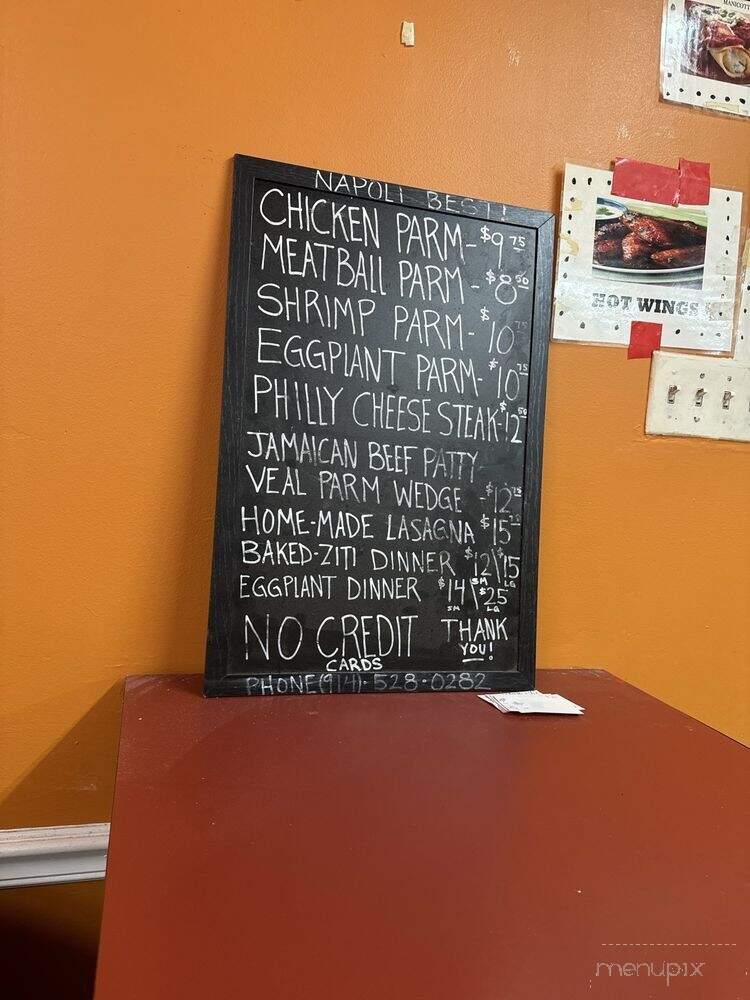 MANICOTT
NAPOLI BEST!
CHICKEN PARM- $9 75
MEATBALL PARM - $8 50
SHRIMP PARM- $10 75
EGGPLANT PARM- $10 75
PHILLY CHEESE STEAK- $12 50
JAMAICAN BEEF PATTY
VEAL PARM WEDGE - $12 75
HOME-MADE LASAGNA $15
BAKED-ZITI DINNER $12\$15
SM LG
EGGPLANT DINNER $14\$25
SM LG
NO CREDIT
CARDS
THANK
YOU!
PHONE(914)-528-0282
HOT WINGS
menupix